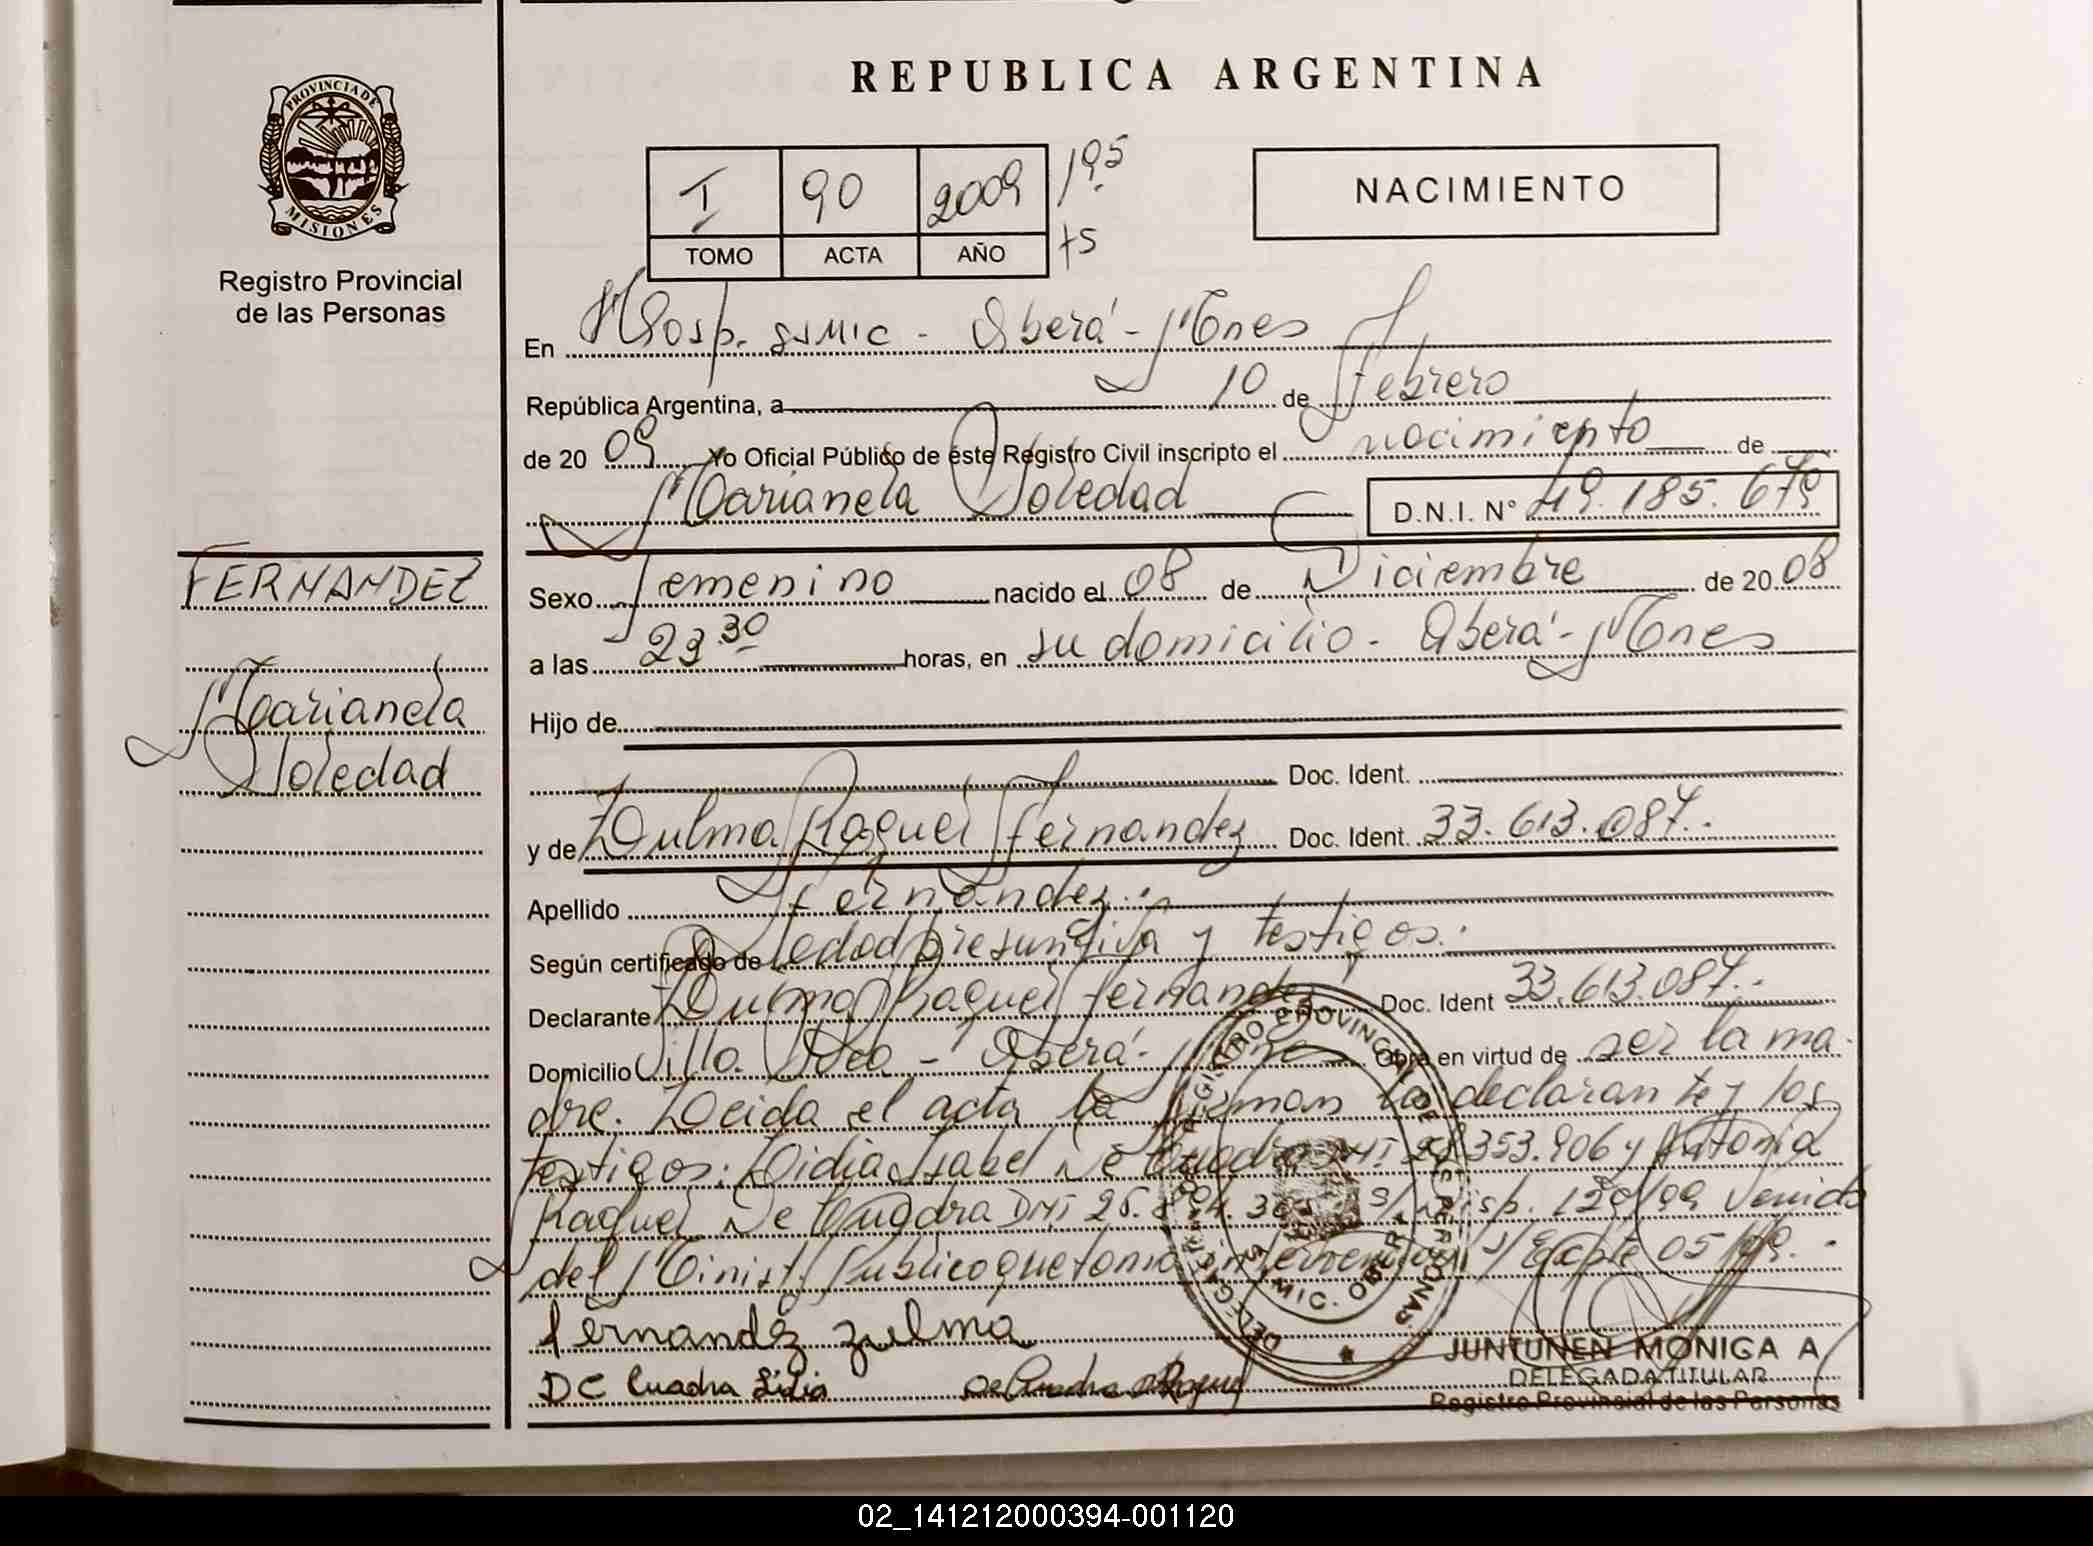 REPUBLICA ARGENTINA
PROVINCIA DE
MISIONES
Registro Provincial
de las Personas
I 90 2009 195
TOMO ACTA AÑO
NACIMIENTO
En Hosp. SAMIC - Oberá - Mnes
República Argentina, a 10 de Febrero
de 20 09 Yo Oficial Público de éste Registro Civil inscripto el nacimiento de
Marianela Soledad D.N.I. Nº 49.185.679
FERNANDEZ
Marianela
Soledad
Sexo femenino nacido el 08 de Diciembre de 20 08
a las 23 30 horas, en su domicilio - Oberá - Mnes
Hijo de
Doc. Ident.
y de Zulma Raquel Fernandez Doc. Ident. 33.613.087.
Apellido Fernandez.
Según certificado de edad presuntiva y testigos.
Declarante Zulma Raquel Fernandez Doc. Ident 33.613.087.
Domicilio Villa - Oberá - Obra en virtud de ser la ma-
dre. Leida el acta la firman la declarante y los
testigos: Lidia Isabel De Cuadra DNI 353.906 y Antonia
Raquel De Cuadra DNI s/ Disp. 129/99 Venida
del Minist. Publico que toma intervencion s/ Expte 05/09.
REGISTRO PROVINCIAL DE LAS PERSONAS
fernandez zulma
De Cuadra Lidia De Cuadra Raquel
JUNTUNEN MONICA A
DELEGADA TITULAR
Registro Provincial de las Personas
02_141212000394-001120